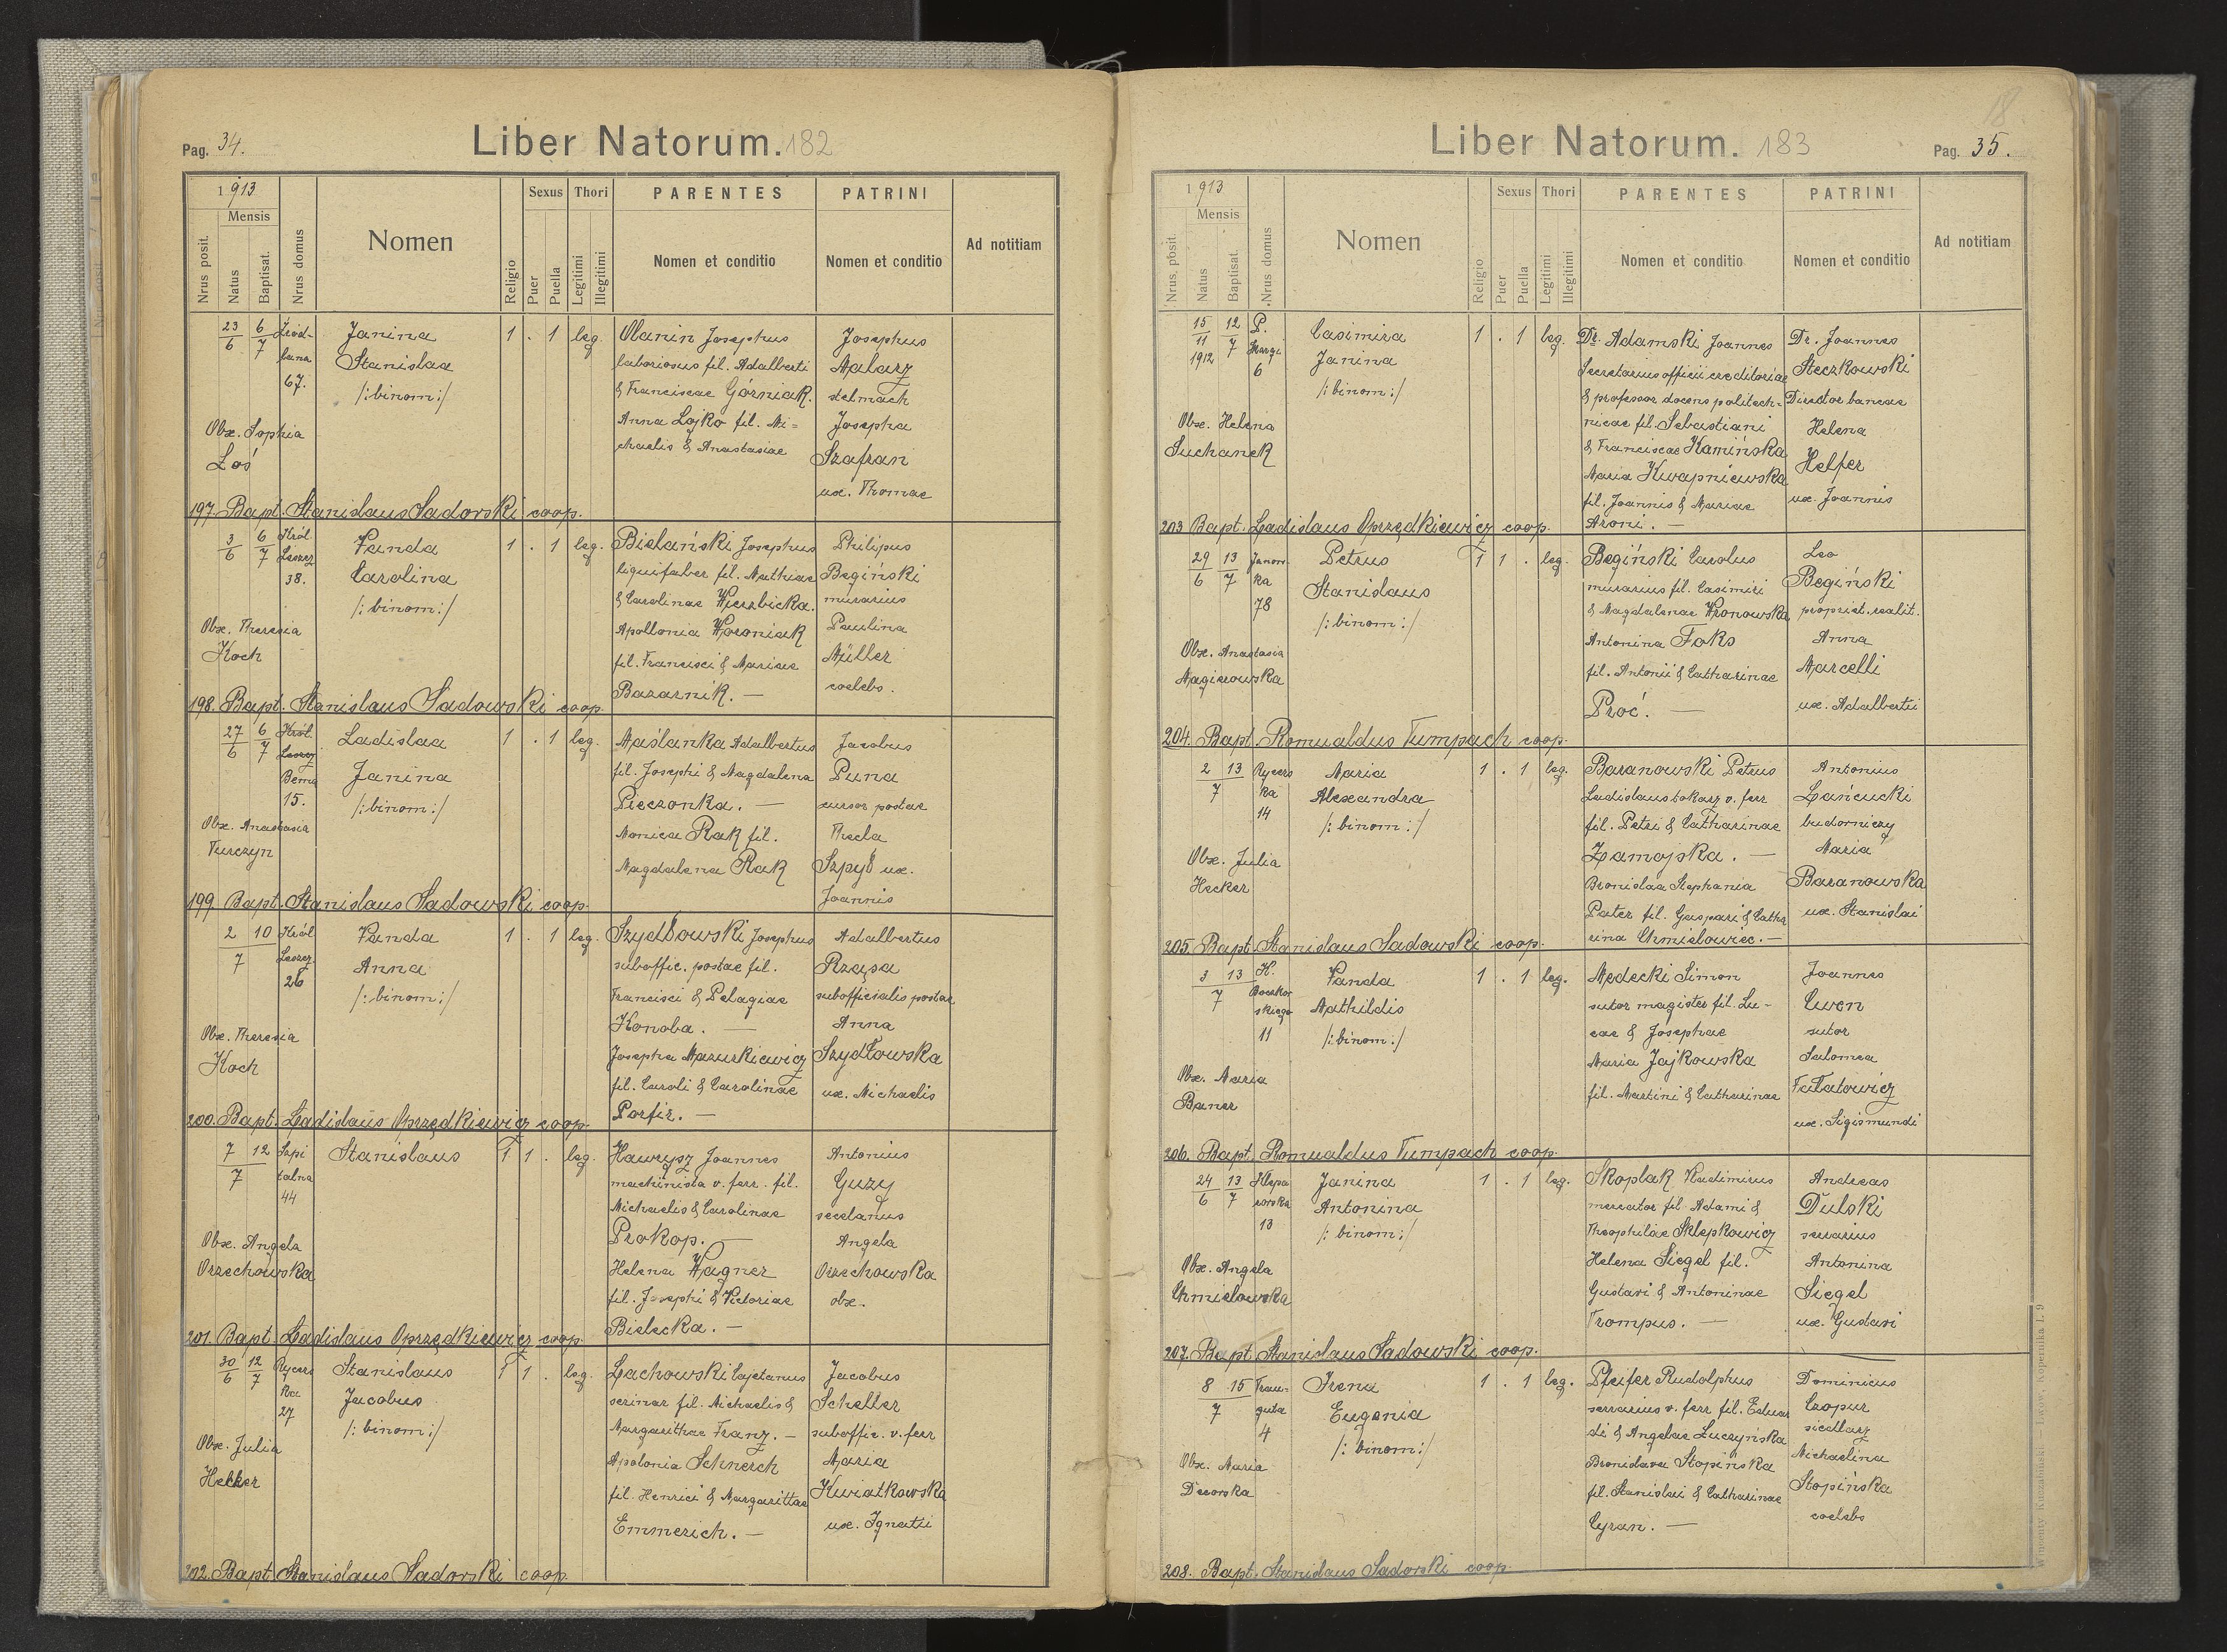 Pag. 34.
Liber Natorum. 182
1913
Mensis
Nrus posit.
Natus
Baptisat.
Nrus domus
Nomen
Religio
Sexus
Puer
Puella
Thori
Legitimi
Illegitimi
PARENTES
Nomen et conditio
PATRINI
Nomen et conditio
Ad notitiam
23/6 6/7 67.
Janina
Stanislaa
/:binom:/
1 . 1 leg.
Olanin Josephus
laboriosus fil. Adalberti
& Franciscae Górniak.
Anna Lojko fil. Mi=
chaelis & Anastasiae
Josephus
Malarz
stelmach
Josepha
Szafran
ux. Thomae
Obx. Sophia
Łoś
197. Bapt. Stanislaus Sadowski coop.
3/6 6/7 Król.
Leszcz.
38.
Vanda
Carolina
/:binom:/
1 . 1 leg.
Bielański Josephus
liquifaber fil. Mathiae
& Carolinae Wierzbicka.
Apollonia Woroniak
fil. Francisci & Mariae
Bazarnik. —
Philipus
Begiński
murarius
Paulina
Müller
coelebs.
Obx. Theresia
Koch
198. Bapt. Stanislaus Sadowski coop.
27/6 6/7 Król.
Leszcz
Bema
15.
Ladislaa
Janina
/:binom:/
1 . 1 leg.
Maślanka Adalbertus
fil. Josephi & Magdalena
Pieczonka. —
Monica Rak fil.
Magdalena Rak
Jacobus
Puna
cursor postae
Thecla
Szpył ux.
Joannis
Obx. Anastasia
Turczyn
199. Bapt. Stanislaus Sadowski coop.
2 10/7 Król
Leszcz
26
Vanda
Anna
/:binom:/
1 . 1 leg.
Szydłowski Josephus
suboffic. postae fil.
Francisci & Pelagiae
Konoba. —
Josepha Mazurkiewicz
fil. Caroli & Carolinae
Porfir. —
Adalbertus
Rząsa
subofficialis postae
Anna
Szydłowska
ux. Michaelis
Obx. Theresia
Koch
200. Bapt. Ladislaus Oprzędkiewicz coop.
7 12/7 Szpi
talna
44
Stanislaus
1 1 . leg.
Hawrysz Joannes
machinista v. ferr. fil.
Michaelis & Carolinae
Prokop. —
Helena Wagner
fil. Josephi & Victoriae
Bielecka. —
Antonius
Guzy
Angela
Orzechowska
obx.
Obx. Angela
Orzechowska
201. Bapt. Ladislaus Oprzędkiewicz coop.
30/6 12/7 Rycers
ka
27
Stanislaus
Jacobus
/:binom:/
1 1 . leg.
Lachowski Cajetanus
scriniar fil. Michaelis &
Margarithae Franz. —
Apolonia Schnerch
fil. Henrici & Margarittae
Emmerich. —
Jacobus
Scheller
suboffic. v. ferr
Maria
Kwiatkowska
ux. Ignatii
Obx. Julia
Hecker
202. Bapt. Stanislaus Sadowski coop.
Liber Natorum. 183
Pag. 35.
18
1913
Mensis
Nrus posit.
Natus
Baptisat.
Nrus domus
Nomen
Religio
Sexus
Puer
Puella
Thori
Legitimi
Illegitimi
PARENTES
Nomen et conditio
PATRINI
Nomen et conditio
Ad notitiam
15/11 1912 12/7 P.
6
Casimira
Janina
/:binom:/
1 . 1 leg.
Dr. Adamski Joannes
Secretarius officii creditoriae
& professor docens politech-
nicae fil. Sebastiani
& Franciscae Kamińska
Maria Kwapniewska
fil. Joannis & Mariae
Aroni. —
Dr. Joannes
Steczkowski
Director bancae
Helena
Helfer
ux. Joannis
Obx. Helena
Suchanek
203. Bapt. Ladislaus Oprzędkiewicz coop.
29/6 13/7 Janow
ka
78
Petrus
Stanislaus
/:binom:/
1 1 . leg.
Begiński Carolus
murarius fil. Casimiri
& Magdalenae Wronowska
Antonina Foks
fil. Antonii & Catharinae
Proć. —
Leo
Begiński
propriet. realit.
Anna
Marcelli
ux. Adalbertii
Obx. Anastasia
Magierowska
204. Bapt. Romualdus Tumpach coop.
2 13/7 Rycers
ka
14
Maria
Alexandra
/:binom:/
1 . 1 leg.
Baranowski Petrus
Ladislaus tokarz v. ferr
fil. Petri & Catharinae
Zamojska. —
Bronislaa Stephania
Pater fil. Gaspari & Catha
rina Chmielowiec. —
Antonius
Łańcucki
budowniczy
Maria
Baranowska
ux. Stanislai
Obx. Julia
Hecker
205. Bapt. Stanislaus Sadowski coop.
3 13/7 K.
skiego
11
Vanda
Mathildis
/:binom:/
1 . 1 leg.
Medecki Simon
sutor magister fil. Lu-
cae & Josephae
Maria Jajkowska
fil. Martini & Catharinae
Joannes
Cwen
sutor
Salomea
Fałatowicz
ux. Sigismundi
Obx. Maria
Baner
206. Bapt. Romualdus Tumpach coop.
24/6 13/7 Klepa
rowska
13
Janina
Antonina
/:binom:/
1 . 1 leg.
Skoplak Vladimirus
mercator fil. Adami &
Theophilae Sklepkowicz
Helena Siegel fil.
Gustavi & Antoninae
Trompus. —
Andreas
Dulski
serarius
Antonina
Siegel
ux. Gustavi
Obx. Angela
Chmielowska
207. Bapt. Stanislaus Sadowski coop.
8 15/7 Trau-
guta
4
Irena
Eugenia
/:binom:/
1 . 1 leg.
Pfeifer Rudolphus
serrarius v. ferr fil. Eduar
di & Angelae Łuczyńska
Bronislava Stopińska
fil. Stanislai & Catharinae
Cyran. —
Dominicus
Czopur
siodlarz
Michaelina
Stopińska
coelebs
Obx. Maria
Deworska
208. Bapt. Stanislaus Sadowski coop.